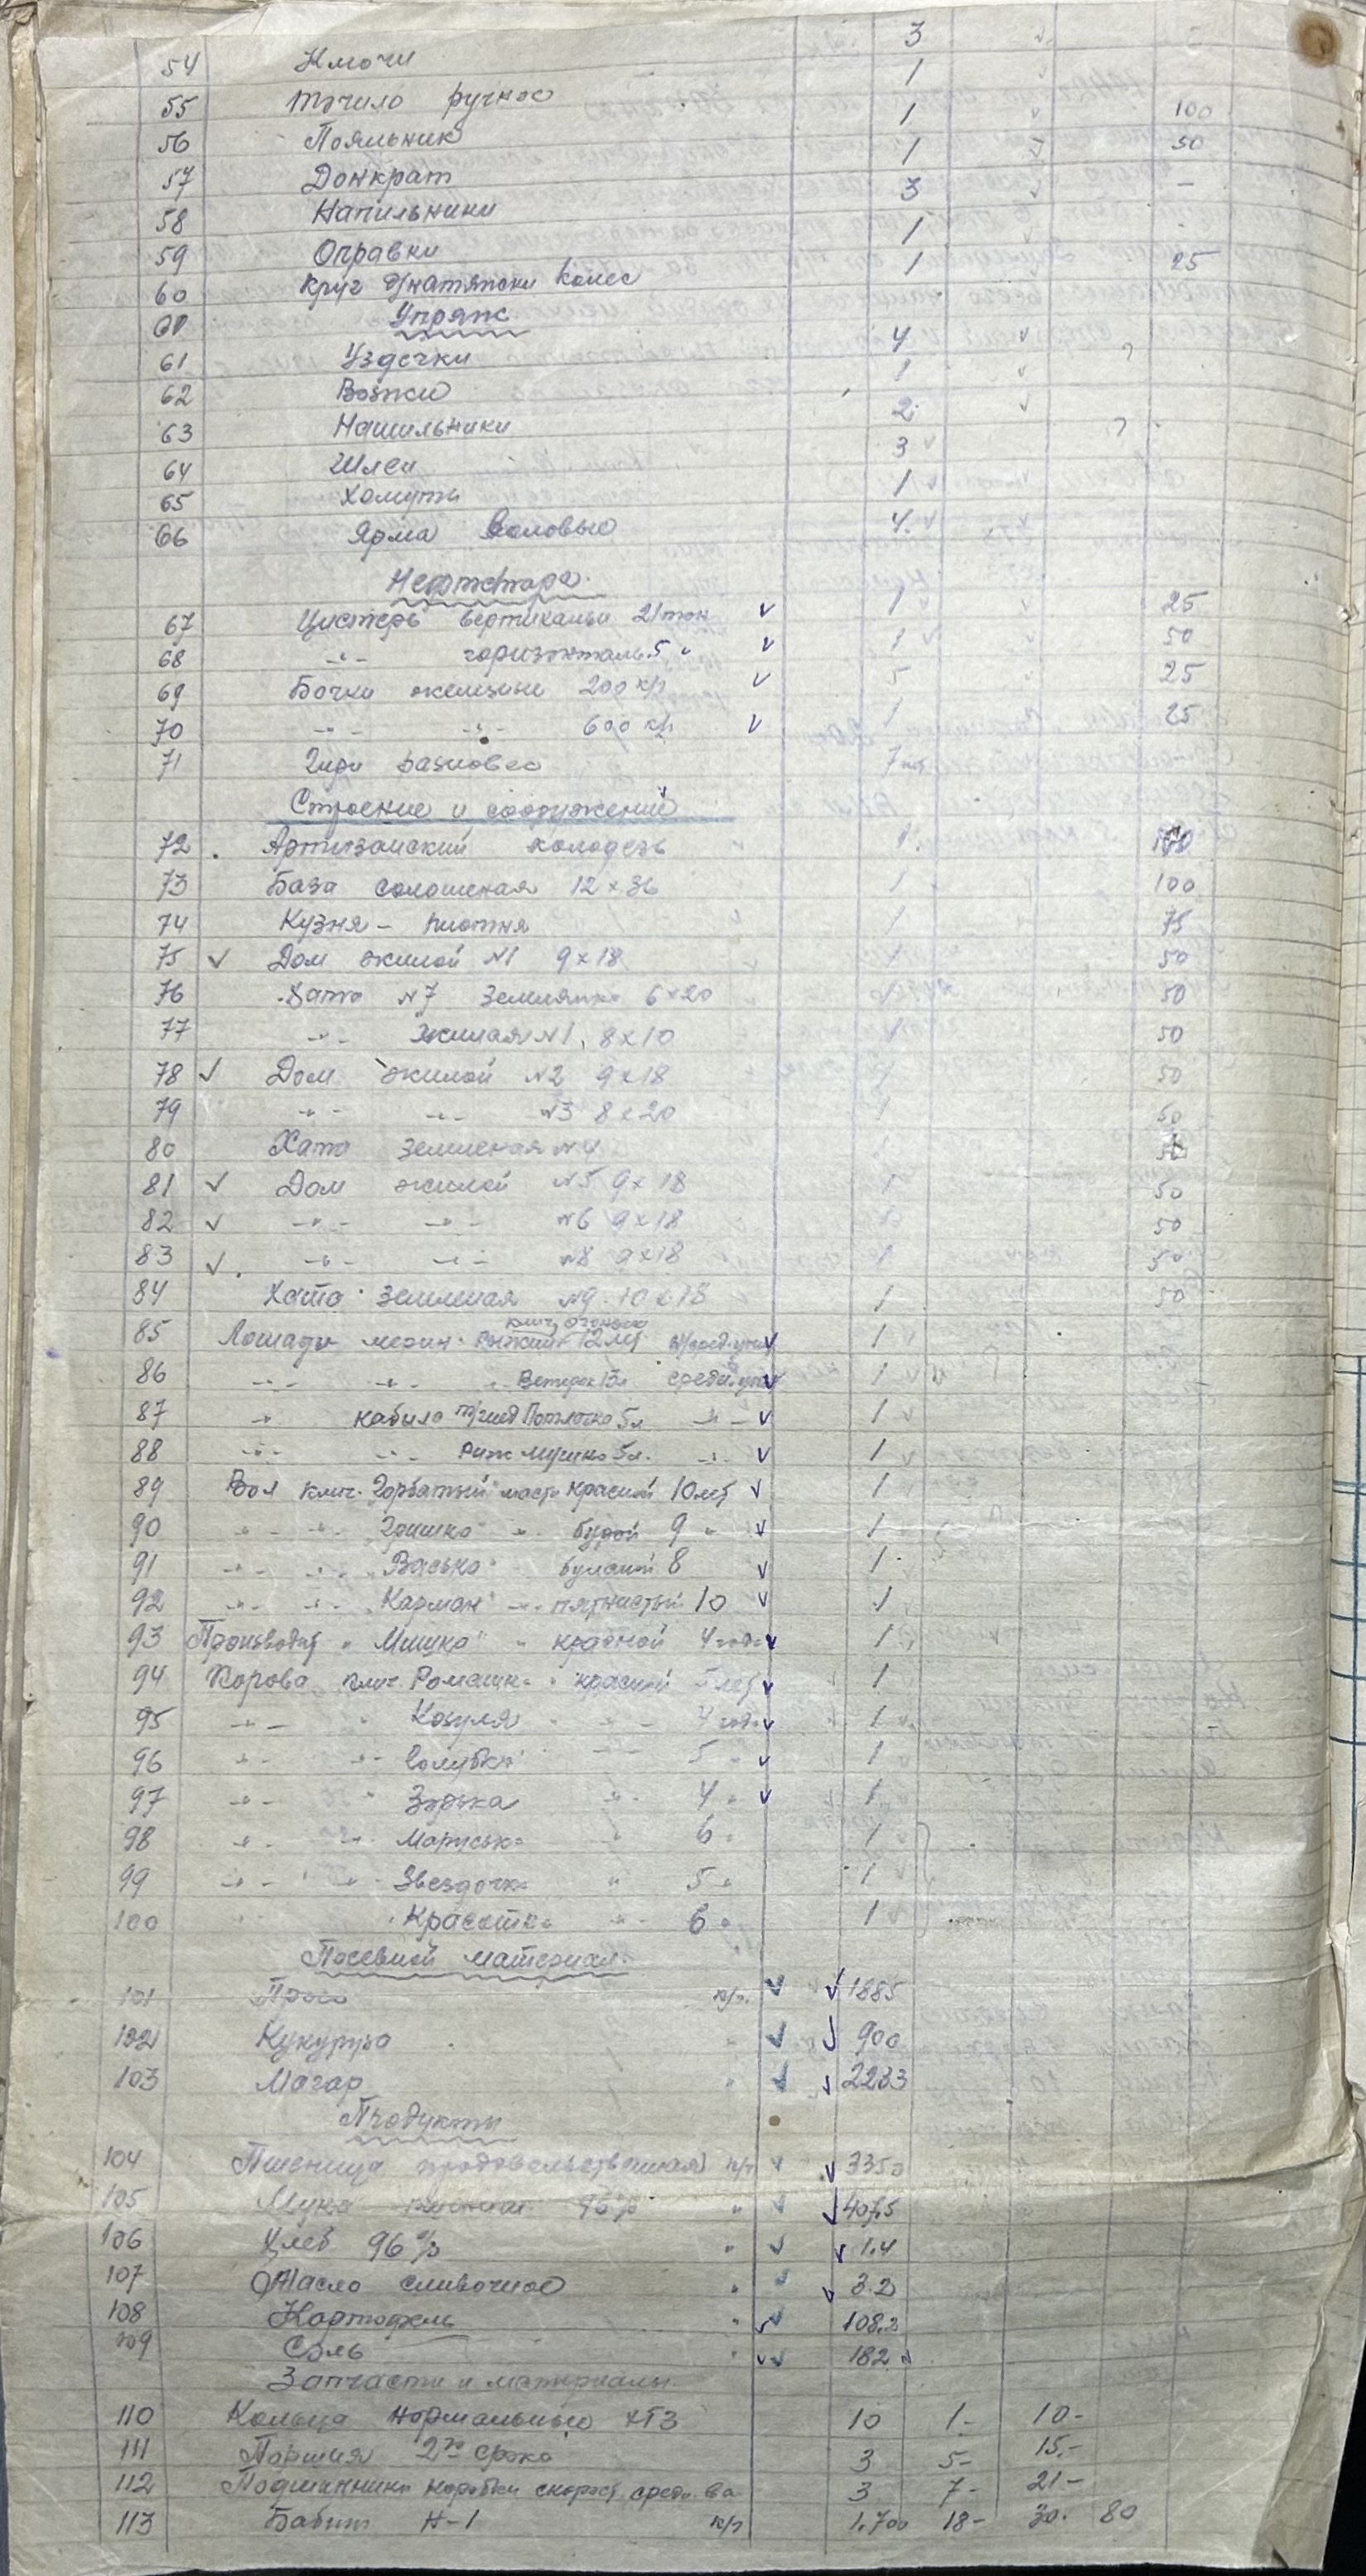 54 Ключи 3
55 Точило ручное 1
56 Пояльник 1 100
57 Донкрат 1 50
58 Напильники 3 -
59 Оправки 1
60 Круг д/натяжки колес 1 25
Упряж
61 Уздечки 4
62 Возжи 1
63 Нашильники 2
64 Шлеи 3
65 Хомуты 1
66 Ярма воловьо 4.
Нефтетара.
67 Цистерь вертикальн 21 тон 1 25
68 -"- горизонталь. 5 " 1 50
69 Бочки железные 200 к/г 5 25
70 -"- -"- 600 к/г 1 25
71 Гири разновес 7 шт
Строение и сооружений
72 Артизанский колодезь 1
73 База саломеная 12 x 36 1 100
74 Кузня - 1 75
75 Дом жилой №1 9 x 18 1 50
76 Хата №7 Землянка 6 x 20 1 50
77 -"- жилая №1. 8 x 10 1 50
78 Дом жилой №2 9 x 18 1 50
79 -"- -"- №3 8 x 20 1 50
80 Хата земленая №4
81 Дом жилой №5 9 x 18 1 50
82 -"- -"- №6 9 x 18 1 50
83 -"- -"- №8 9 x 18 1 50
84 Хата земленая №9. 10 x 18 1 50
85 Лошади мерин 12 1
86 -"- -"- Ветерок 13 л 1
87 -"- кабыла 5 л -"- 1
88 -"- -"- 5 л. -"- 1
89 Вол клич. "Горбатый" масть красный 10 лет 1
90 -"- -"- "Гришка" -"- бурой 9 " 1
91 -"- -"- "Васька" буланый 8 1
92 -"- -"- "Карман" -"- пятнистый 10 1
93 Производит " "Мишка" " красной 4 года 1
94 Корова клич. Ромашка " красной 5 лет 1
95 -"- " Козуля " -"- 4 года 1
96 -"- -"- Голубка -"- 5 " 1
97 -"- " Зорька -"- 4 " 1
98 -"- -"- " 6 " 1
99 -"- -"- Звездочка " 5 " 1
100 " Красотка -"- 6 " 1
Посевной материал.
101 Просо к/г. 1885
102 Кукуруза " 900
103 Магар " 2233
Продукты
104 Пшеница продовольственная к/г 3350
105 Мука "
106 Хлеб 96% " 1.4
107 Масло сливочное " 3.2
108 Картофель " 108.2
109 Соль " 182
Запчасти и материалы
110 Кольца нормальные ХТЗ 10 1- 10-
111 Поршня 2го срока 3 5- 15.-
112 Подшипники коробки скорост. 3 7- 21-
113 Бабит Н-1 к/г 1.700 18- 30. 80